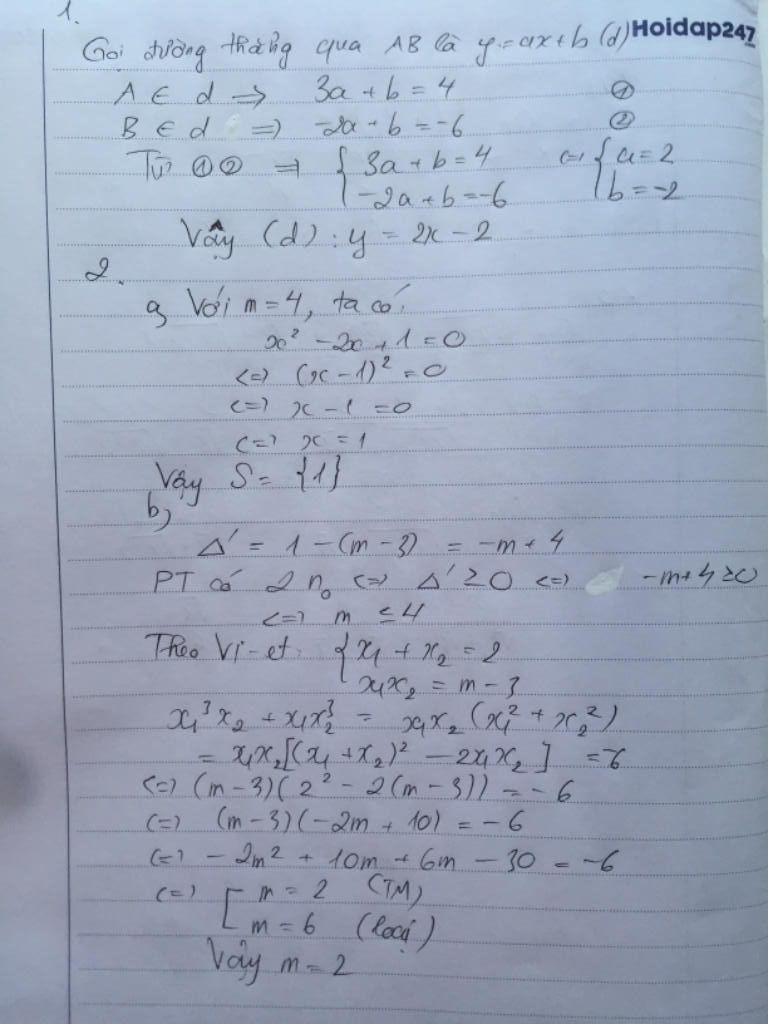 1.
Gọi đường thẳng qua AB là y = ax + b (d) Hoidap247
A ∈ d => 3a + b = 4 ①
B ∈ d => -2a + b = -6 ②
Từ ①② => { 3a + b = 4 <=> { a = 2
-2a + b = -6 b = -2
Vậy (d) : y = 2x - 2
2.
a, Với m = 4, ta có:
x² - 2x + 1 = 0
<=> (x - 1)² = 0
<=> x - 1 = 0
<=> x = 1
Vậy S = {1}
b,
Δ' = 1 - (m - 3) = -m + 4
PT có 2 n₀ <=> Δ' ≥ 0 <=> -m + 4 ≥ 0
<=> m ≤ 4
Theo Vi-et: { x₁ + x₂ = 2
x₁x₂ = m - 3
x₁³x₂ + x₁x₂³ = x₁x₂(x₁² + x₂²)
= x₁x₂[(x₁ + x₂)² - 2x₁x₂] = -6
<=> (m - 3)(2² - 2(m - 3)) = -6
<=> (m - 3)(-2m + 10) = -6
<=> -2m² + 10m + 6m - 30 = -6
<=> [ m = 2 (TM)
m = 6 (loại)
Vậy m = 2